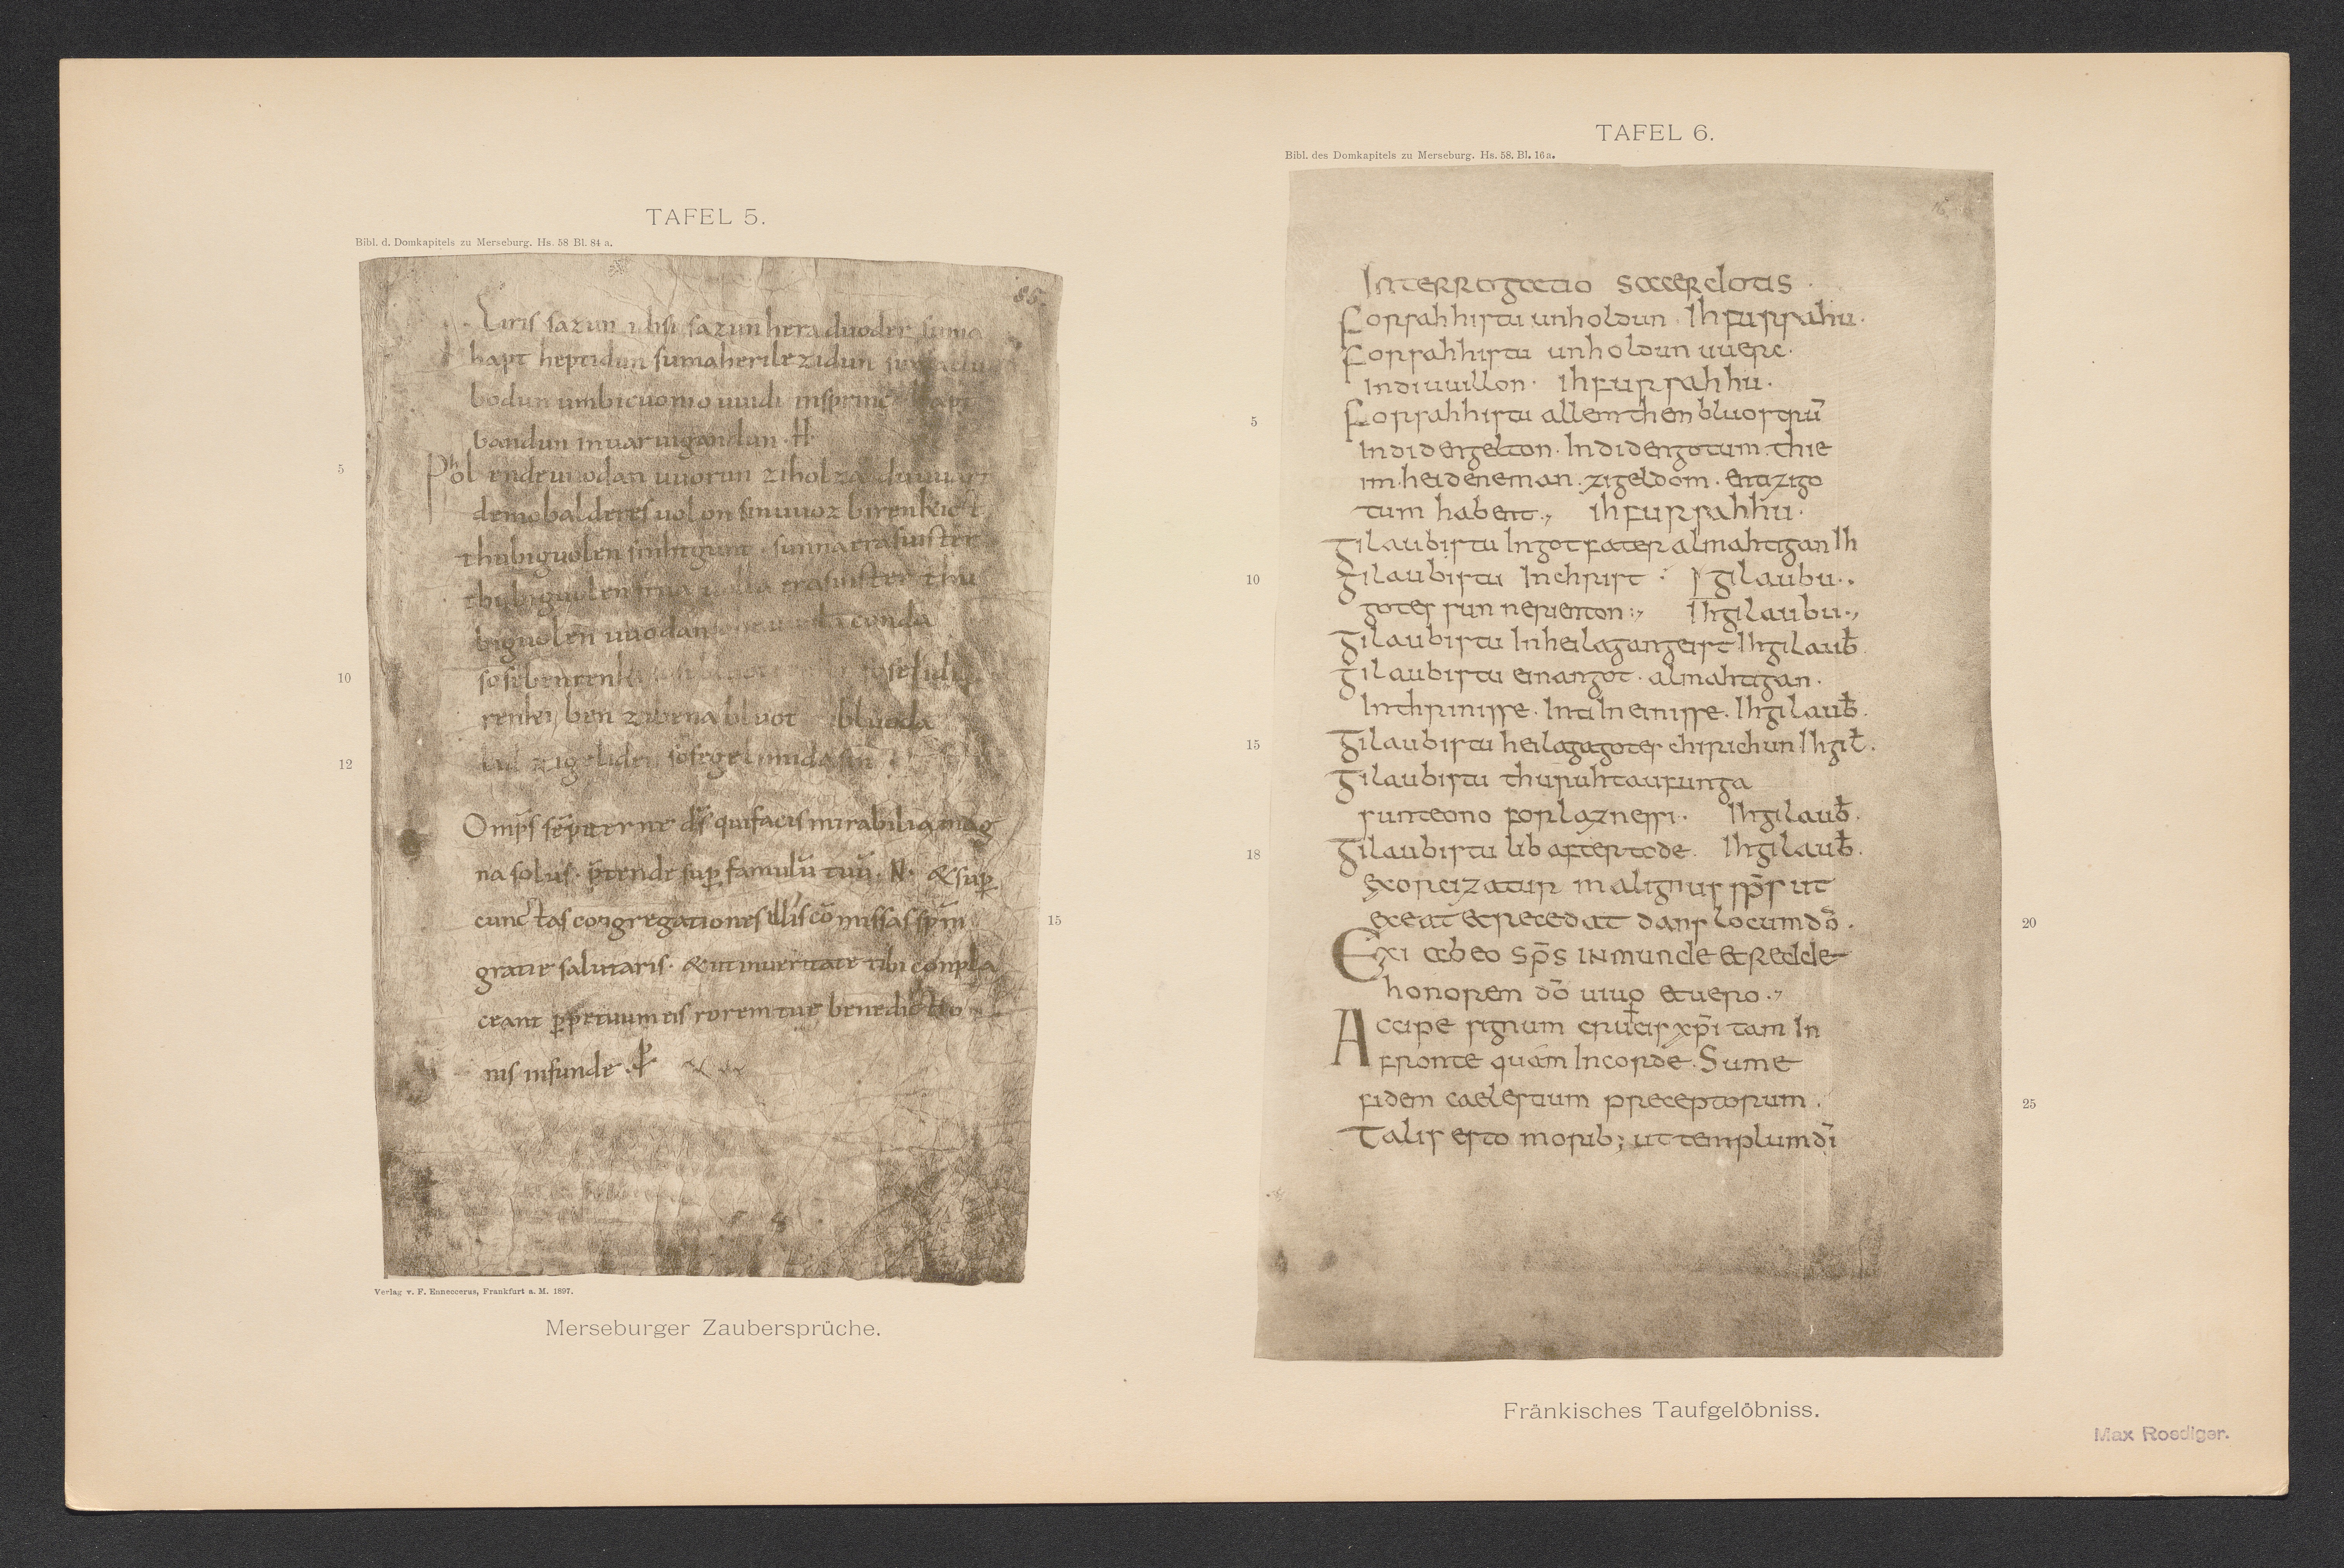 TAFEL 5.
Bibl. d. Domkapitels zu Merseburg. Hs. 58 Bl. 84 a.
85.
Eiris sazun idisi sazun hera duoder suma
hapt heptidun suma herilezidun suma
bodun umbicuonio uuidi insprinc hapt
bandun inuar uigandun · H ·
5
Phol endeuuodan uuorun ziholza du uuart
demobalderes uolon sinuuoz birenkict
thubiguolen sinhtgunt · sunna erasuister
thubiguolen friia uolla erasuister thu
biguolen uuodan conda
10
sosebenrenki sose lidi
renki ben zibena bluot bluoda
12
lid zigeliden sosegelimida sin
Omp̅s se̅piterne d̅s quifacis mirabilia mag
na solus · p̅tende sup famulu̅ tuu̅ · N · &sup
cunctas congregationes illis co̅missas sp̅m
15
gratie salutaris · &utinueritate tibi conpla
ceant p̲petuum eis rorem tue benedictio
nis infunde · P
Verlag v. F. Enneccerus, Frankfurt a. M. 1897.
Merseburger Zaubersprüche.
TAFEL 6.
Bibl. des Domkapitels zu Merseburg. Hs. 58. Bl. 16a.
16
Interrogatio sacerdotis ·
Forsahhistu unholdun · Ih fursahu ·
Forsahhistu unholdun uuerc ·
indi uuillon · ih fursahhu ·
5
Forsahhistu allem them bluostru̅
indi den gelton · Indi den gotum · thie
im heidene man · zi geldom · enti zi go
tum habent ., ih fursahhu ·
Gilaubistu In got fater almahtigan Ih
10
Gilaubistu In christ gilaubu .,
gotes sun nerienton :, Ih gilaubu .,
Gilaubistu In heilagan geist · Ih gilaub̅
Gilaubistu einan got · almahtigan ·
In thrinisse · Inti In einisse · Ih gilaub̅ ·
15
Gilaubistu heilaga gotes chirichun Ih gil̅ ·
Gilaubistu thuruh taufunga
sunteono forlaznessi · Ih gilaub̅ ·
18
Gilaubistu lib after tode · Ih gilaub̅ ·
exorcizatur malignus sp̅s ut
exeat & recedat dans locum do̅ ·
20
Exi ab eo sp̅s inmunde & redde
honorem do̅ uiuo & uero .,
Accipe signum crucis xp̅i tam In
fronte quam In corde · Sume
fidem caelestium preceptorum ·
25
Talis esto morib; ut templum di̅
Fränkisches Taufgelöbniss.
Max Roediger.